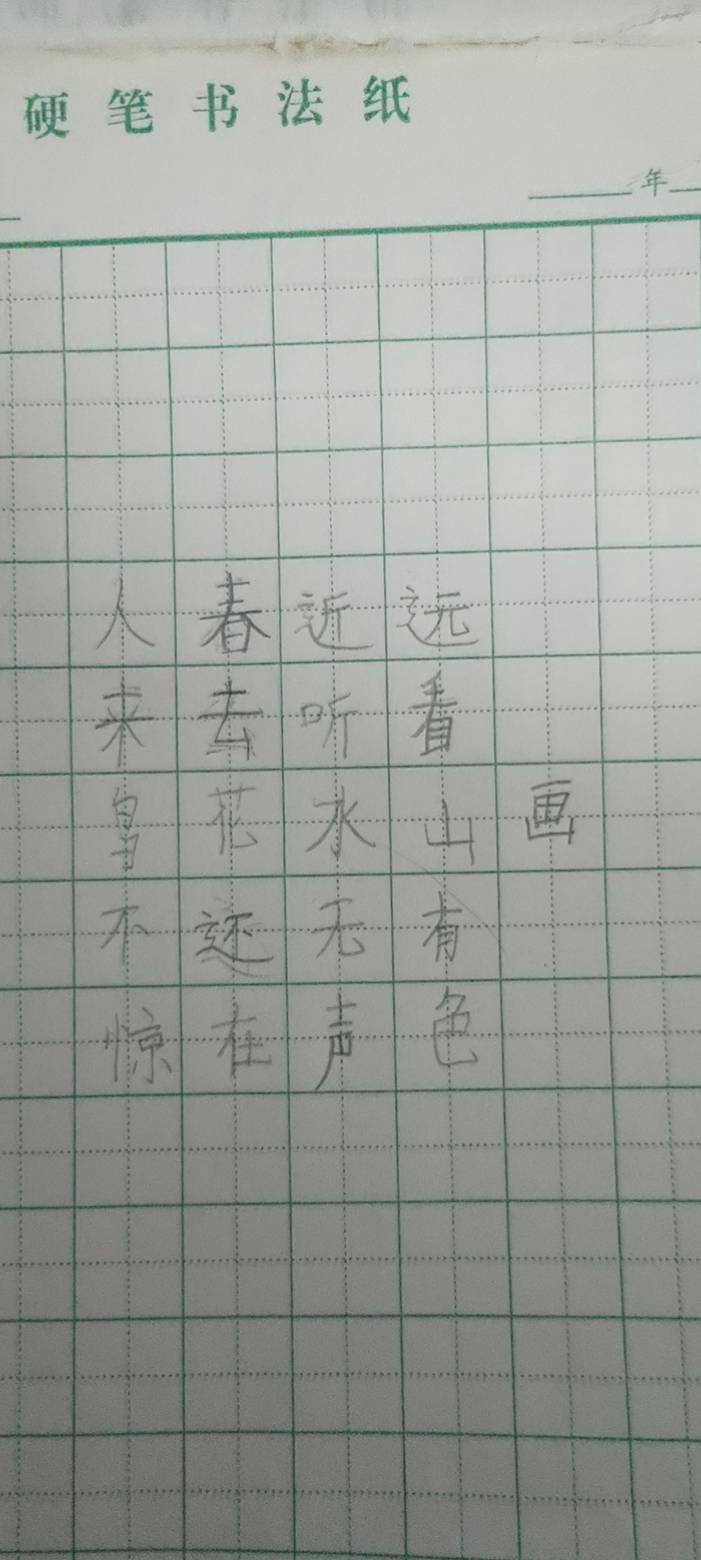 硬笔书法纸
年
画
远看山有色
近听水无声
春去花还在
人来鸟不惊